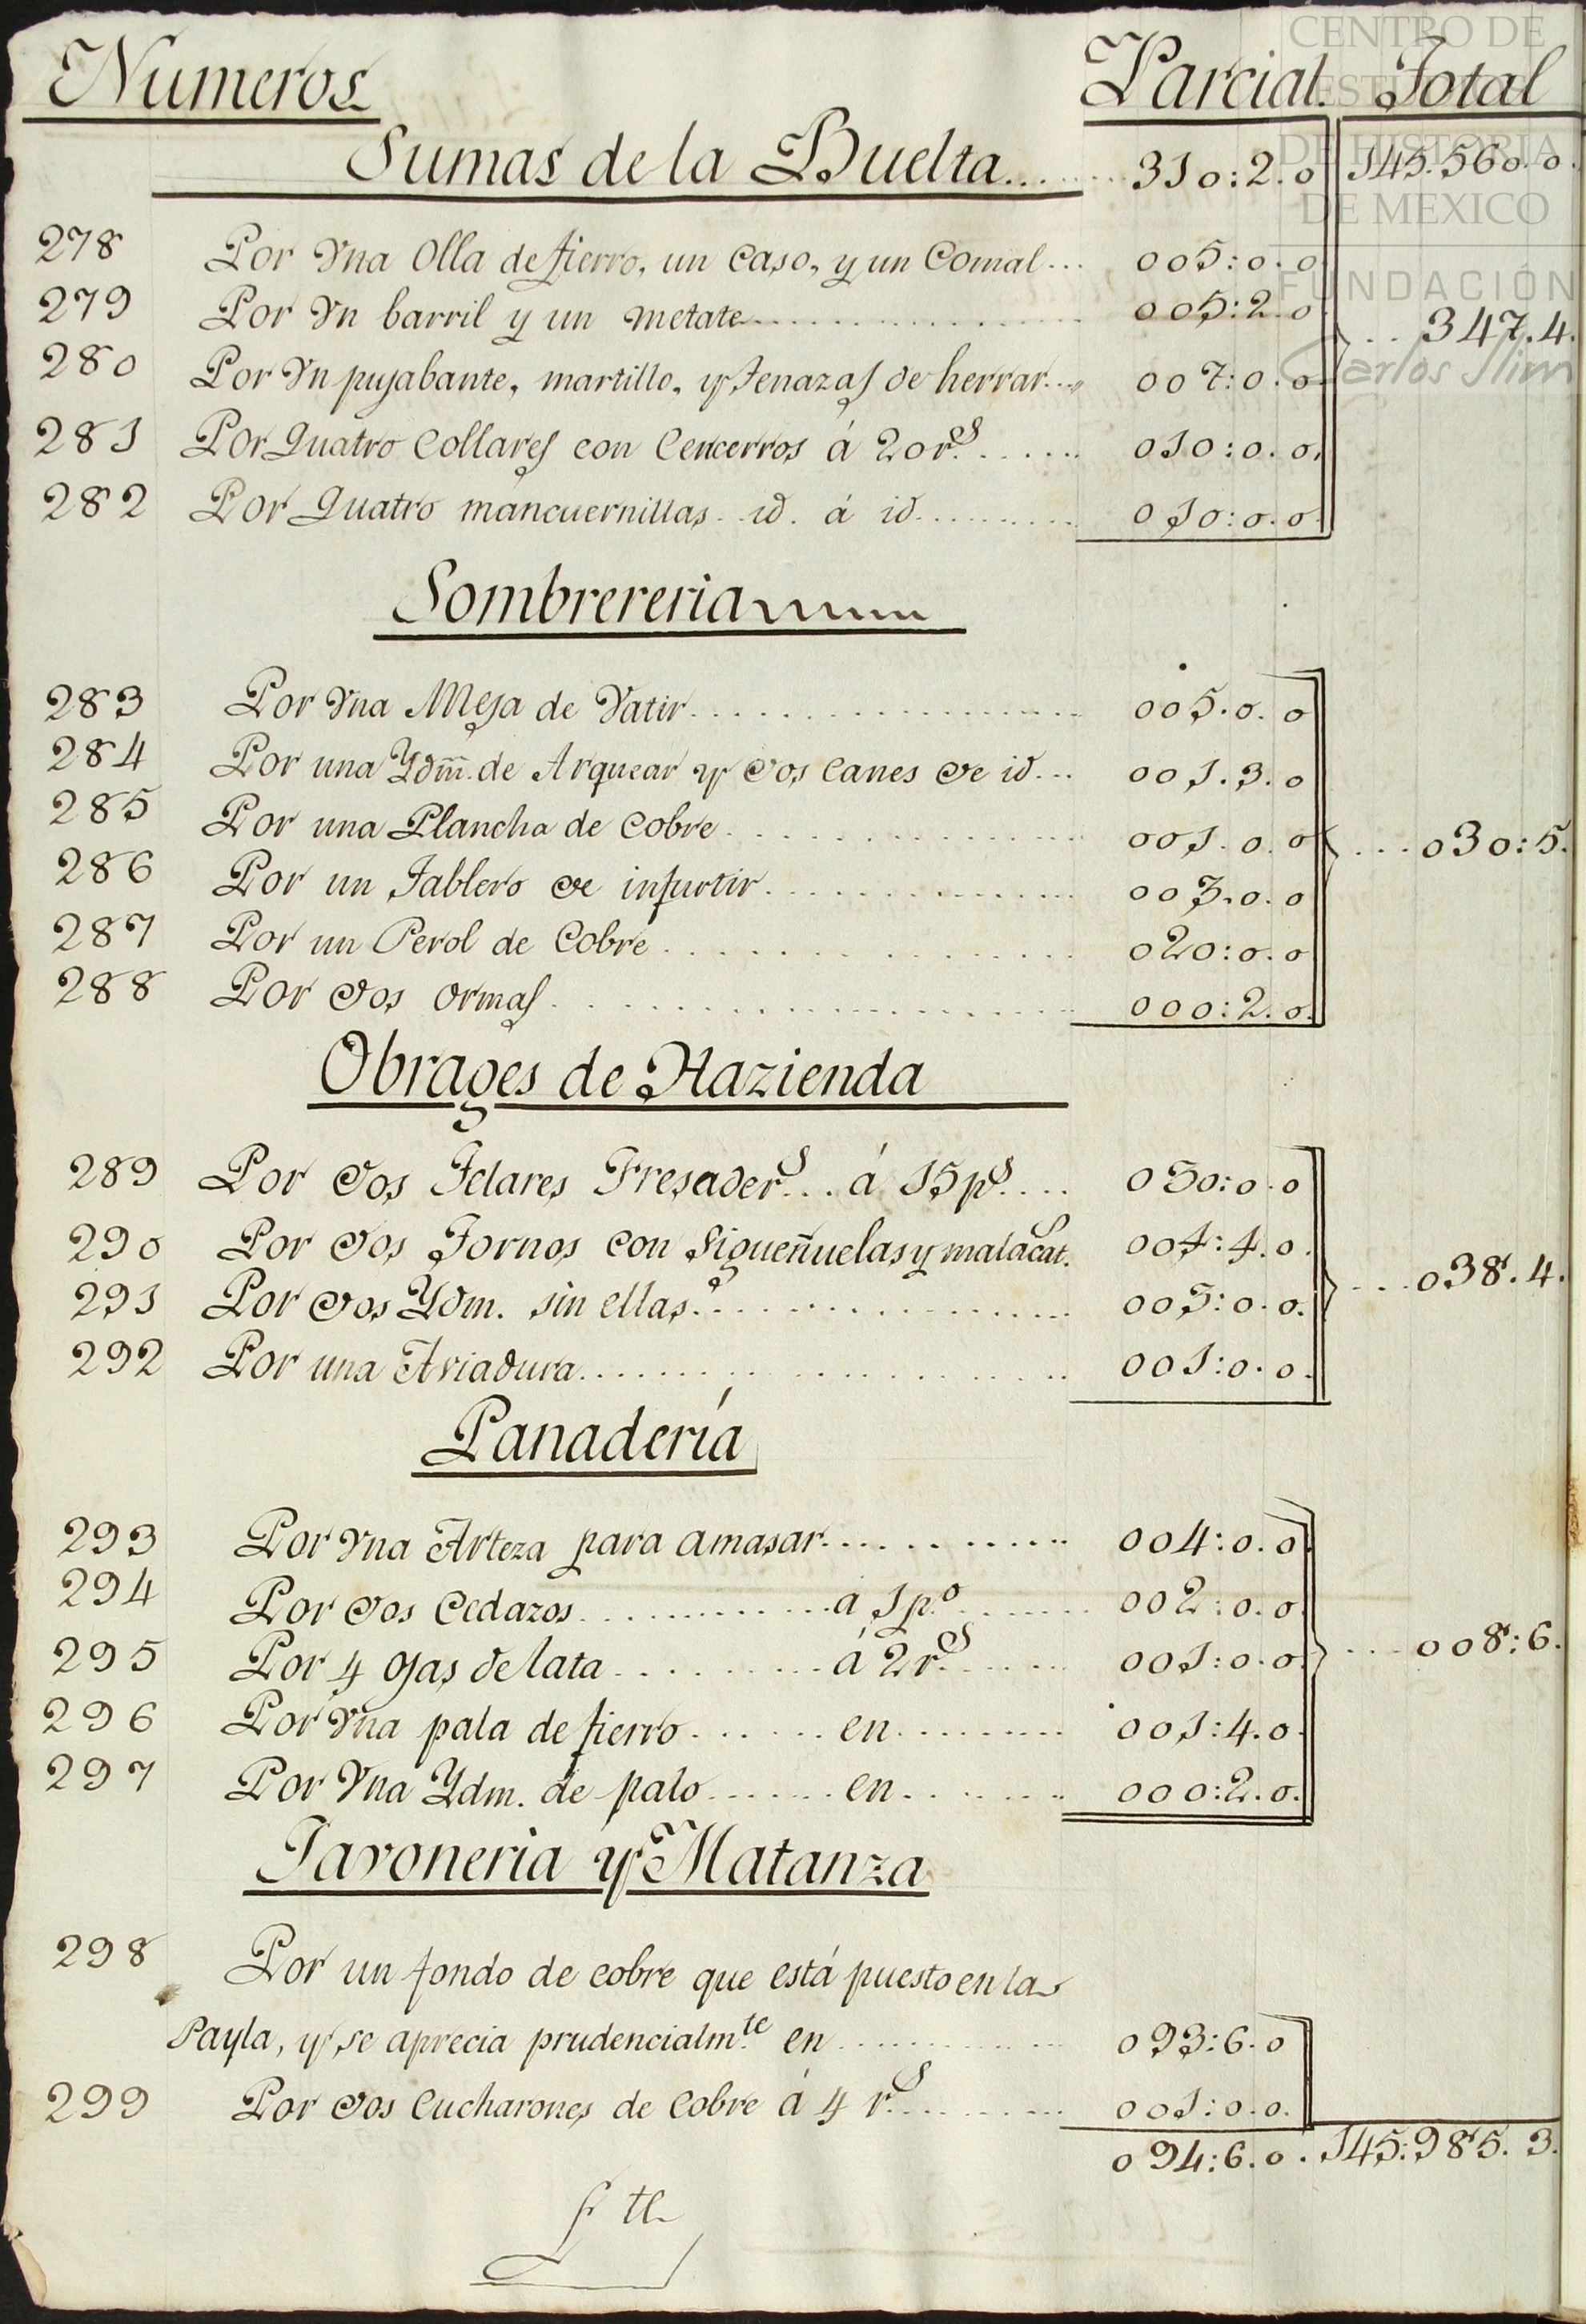 Numeros Parcial. Total
Sumas de la Buelta....... 310:2.0 145.560.0.
278 Por Vna Olla de fierro, un Caso, y un Comal... 005:0.0
279 Por Vn barril y un metate............... 005:2.0
... 347.4.
280 Por Vn pujabante, martillo, y Tenazas de herrar... 007:0.0
281 Por Quatro Collares con Cencerros á 20 r.s...... 010:0.0.
282 Por Quatro mancuernillas.. id. á id.......... 010:0.0.
Sombrereria
283 Por Vna Mesa de Vatir.................... 005.0.0
284 Por una Ydm̃. de Arquear y dos Canes de id... 001.3.0
285 Por una Plancha de Cobre.................. 001.0.0
... 030:5.
286 Por un Tablero de infurtir............... 003.0.0
287 Por un Perol de Cobre.................. 020:0.0
288 Por dos ormas....................... 000:2.0.
Obrages de Hazienda
289 Por dos Telares Fresader.s... á 15 p.s.... 030:0.0
290 Por dos Tornos con Sigueñuelas y malacat.s 004:4.0.
... 038.4.
291 Por dos Ydm. sin ellas................... 003:0.0.
292 Por una Aviadura....................... 001:0.0.
Panadería
293 Por Vna Arteza para amasar............. 004:0.0.
294 Por dos Cedazos............. á 1 p.o........ 002:0.0.
295 Por 4 ojas de lata........... á 2 r.s....... 001:0.0.
... 008:6.
296 Por Vna pala de fierro....... en.......... 001:4.0.
297 Por Vna Ydm. de palo....... en.......... 000:2.0.
Javoneria y Matanza
298 Por un fondo de cobre que está puesto en la
Payla, y se aprecia prudencialm.te en............. 093:6.0
299 Por dos Cucharones de Cobre á 4 r.s.......... 001:0.0.
094:6.0. 145:985.3.
CENTRO DE
ESTUDIOS
DE HISTORIA
DE MEXICO
FUNDACIÓN
Carlos Slim